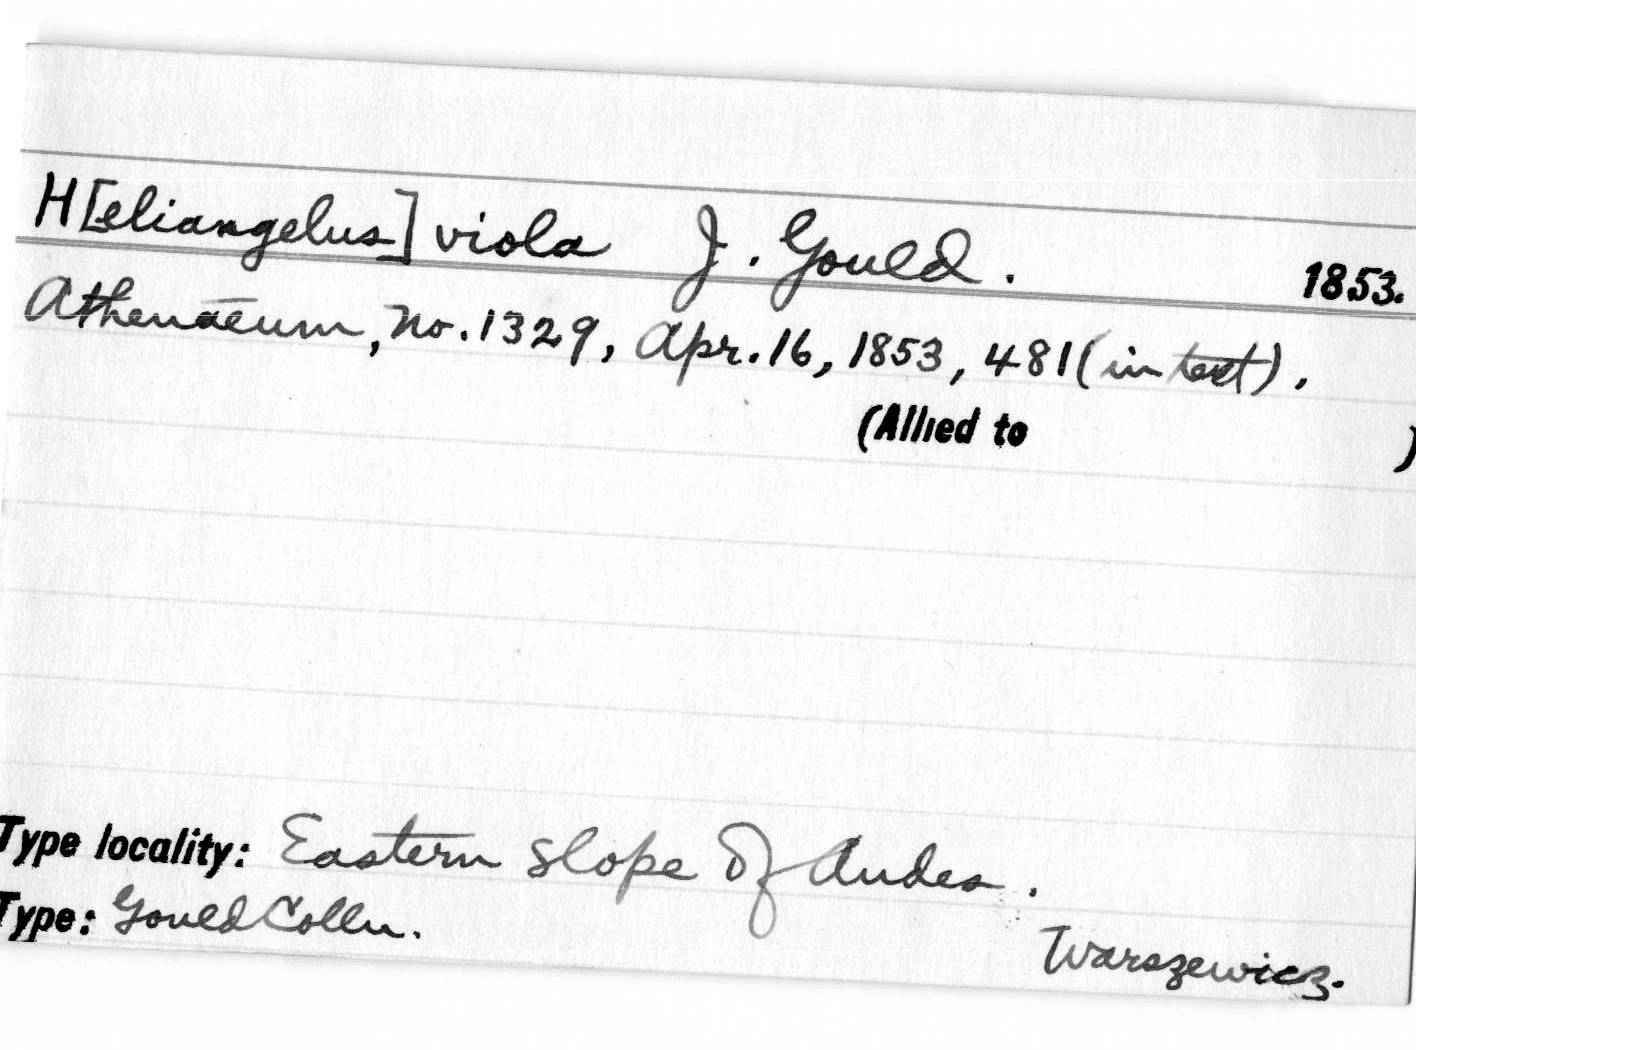 H[eliangelus] viola J. Gould. 1853.
Athenaeum, No. 1329, Apr. 16, 1853, 481 (in text).
(Allied to )
Type locality: Eastern slope of Andes.
Type: Gould Colln.
Warszewicz.